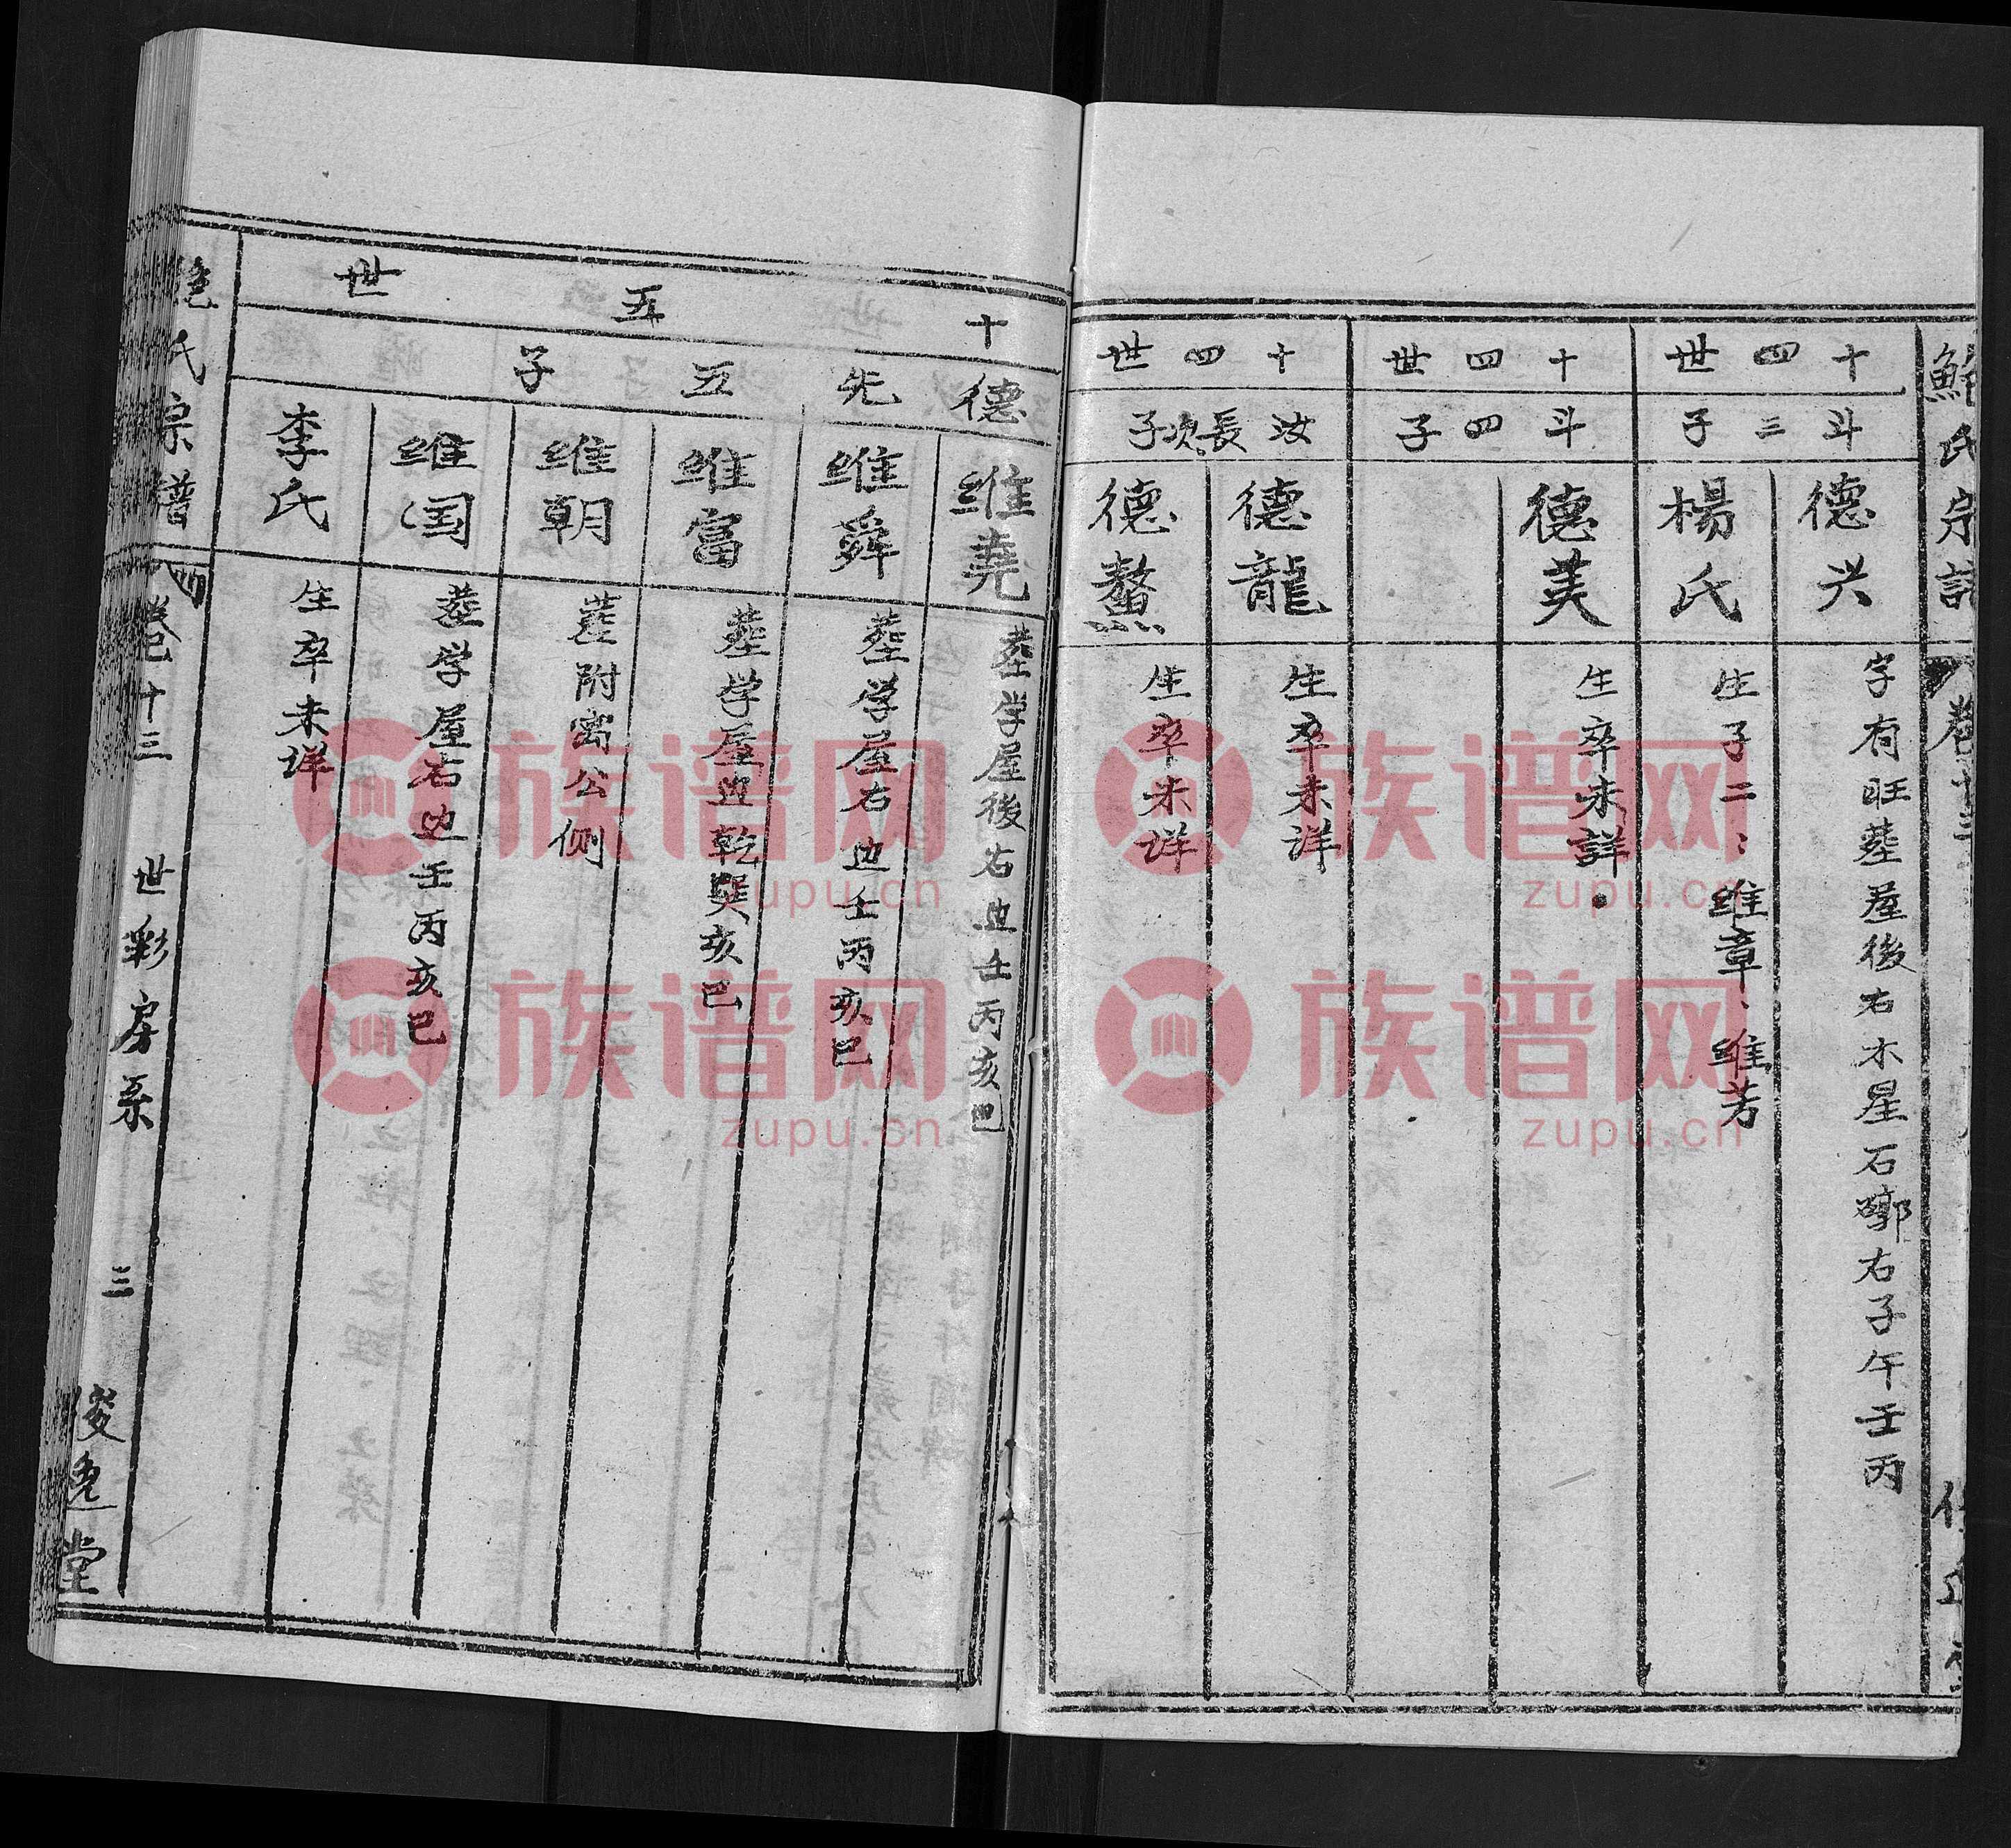 氏宗譜
卷十三
十四世
斗三子
德兴
字有旺葬屋後右木星石磖右子午壬丙
楊氏
生子二：维章：维芳
十四世
斗四子
德美
生卒未詳
十四世
汝長次子
德龍
生卒未详
德鰲
生卒未详
十五世
德先五子
维堯
葬学屋後右边壬丙亥巳
维舜
葬学屋右边壬丙亥巳
维富
葬学屋边乾巽亥巳
维朝
葬附离公侧
维国
葬学屋右边壬丙亥巳
李氏
生卒未详
氏宗谱
卷十三
世彩房系
三
堂
族谱网
zupu.cn
族谱网
zupu.cn
族谱网
zupu.cn
族谱网
zupu.cn